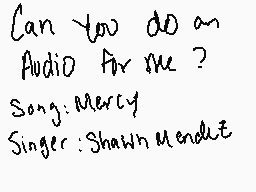 Can You do an
Audio for me ?
Song: Mercy
Singer: Shawn Mendez